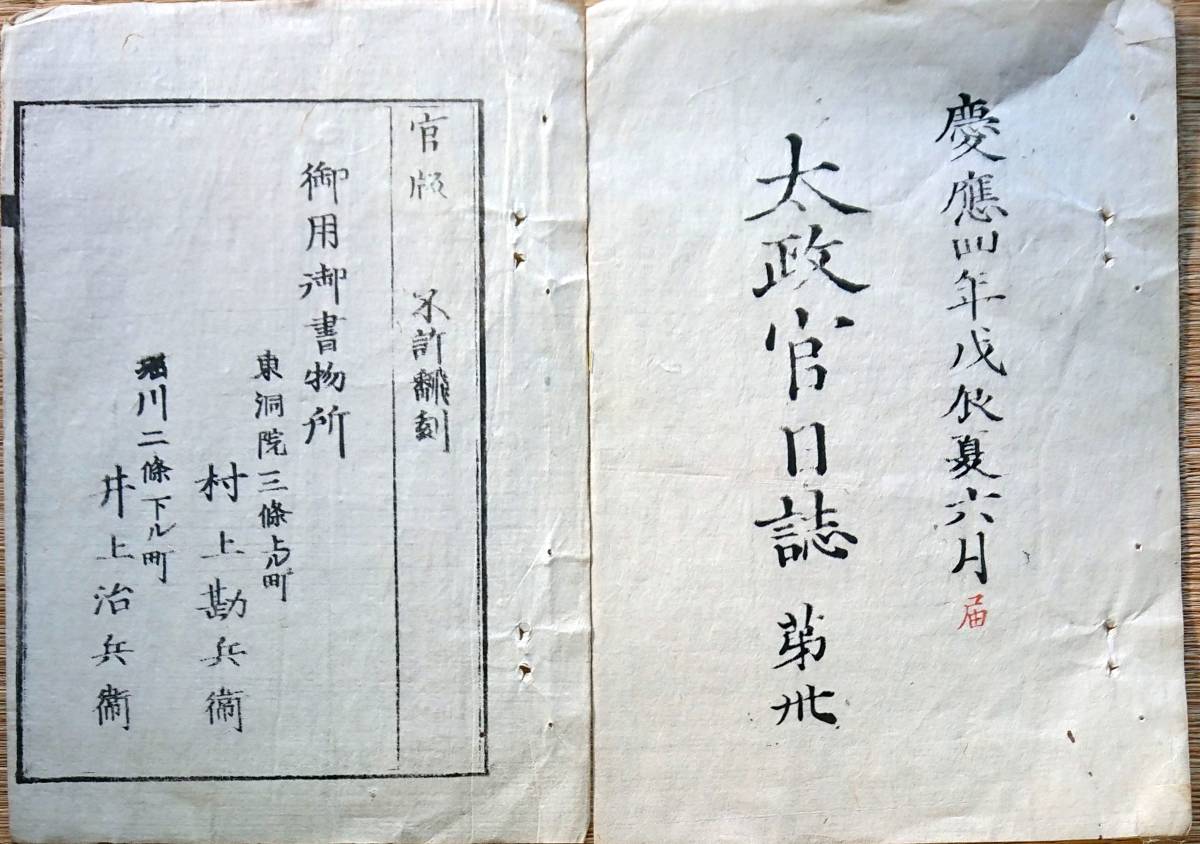 慶應四年戊辰夏六月 届
太政官日誌 第卅
官版 不許翻刻
御用御書物所
東洞院三條上ル町
村上勘兵衞
堀川二條下ル町
井上治兵衞